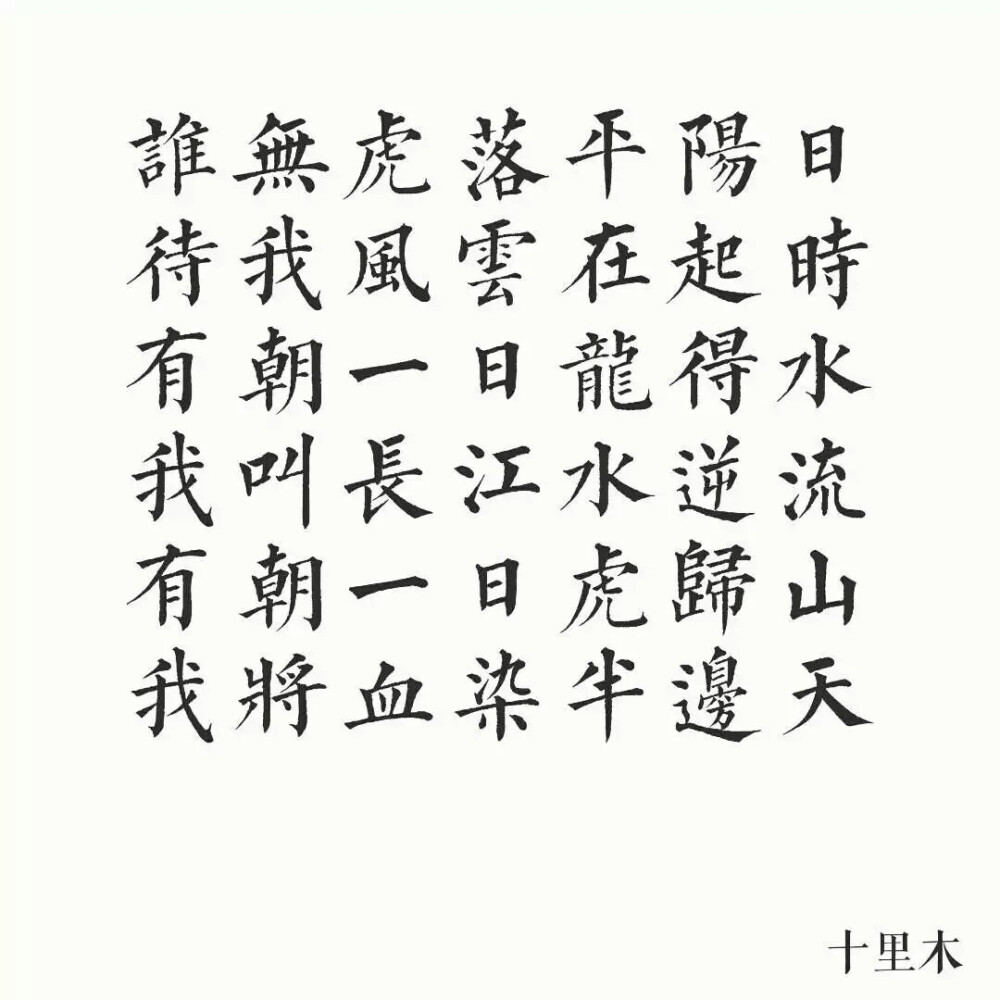 誰無虎落平陽日
待我風雲在起時
有朝一日龍得水
我叫長江水逆流
有朝一日虎歸山
我將血染半邊天
十里木